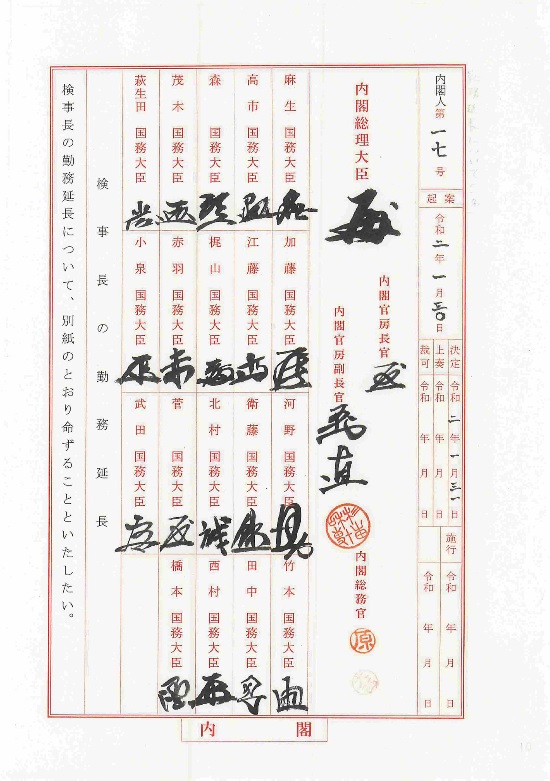 内閣人第一七号
起案 令和二年一月三〇日
決定 令和二年一月三一日
上奏 令和 年 月 日
裁可 令和 年 月 日
施行 令和 年 月 日
令和 年 月 日
内閣総理大臣
内閣官房長官
内閣官房副長官
内閣総務官
原
麻生 国務大臣
加藤 国務大臣
河野 国務大臣
竹本 国務大臣
高市 国務大臣
江藤 国務大臣
衛藤 国務大臣
田中 国務大臣
森 国務大臣
梶山 国務大臣
北村 国務大臣
西村 国務大臣
茂木 国務大臣
赤羽 国務大臣
菅 国務大臣
橋本 国務大臣
萩生田 国務大臣
小泉 国務大臣
武田 国務大臣
検事長の勤務延長
検事長の勤務延長について、別紙のとおり命ずることといたしたい。
内閣